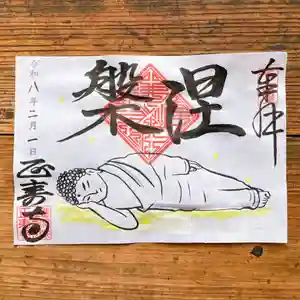 奉拝
涅槃
令和八年二月一日
正寿寺